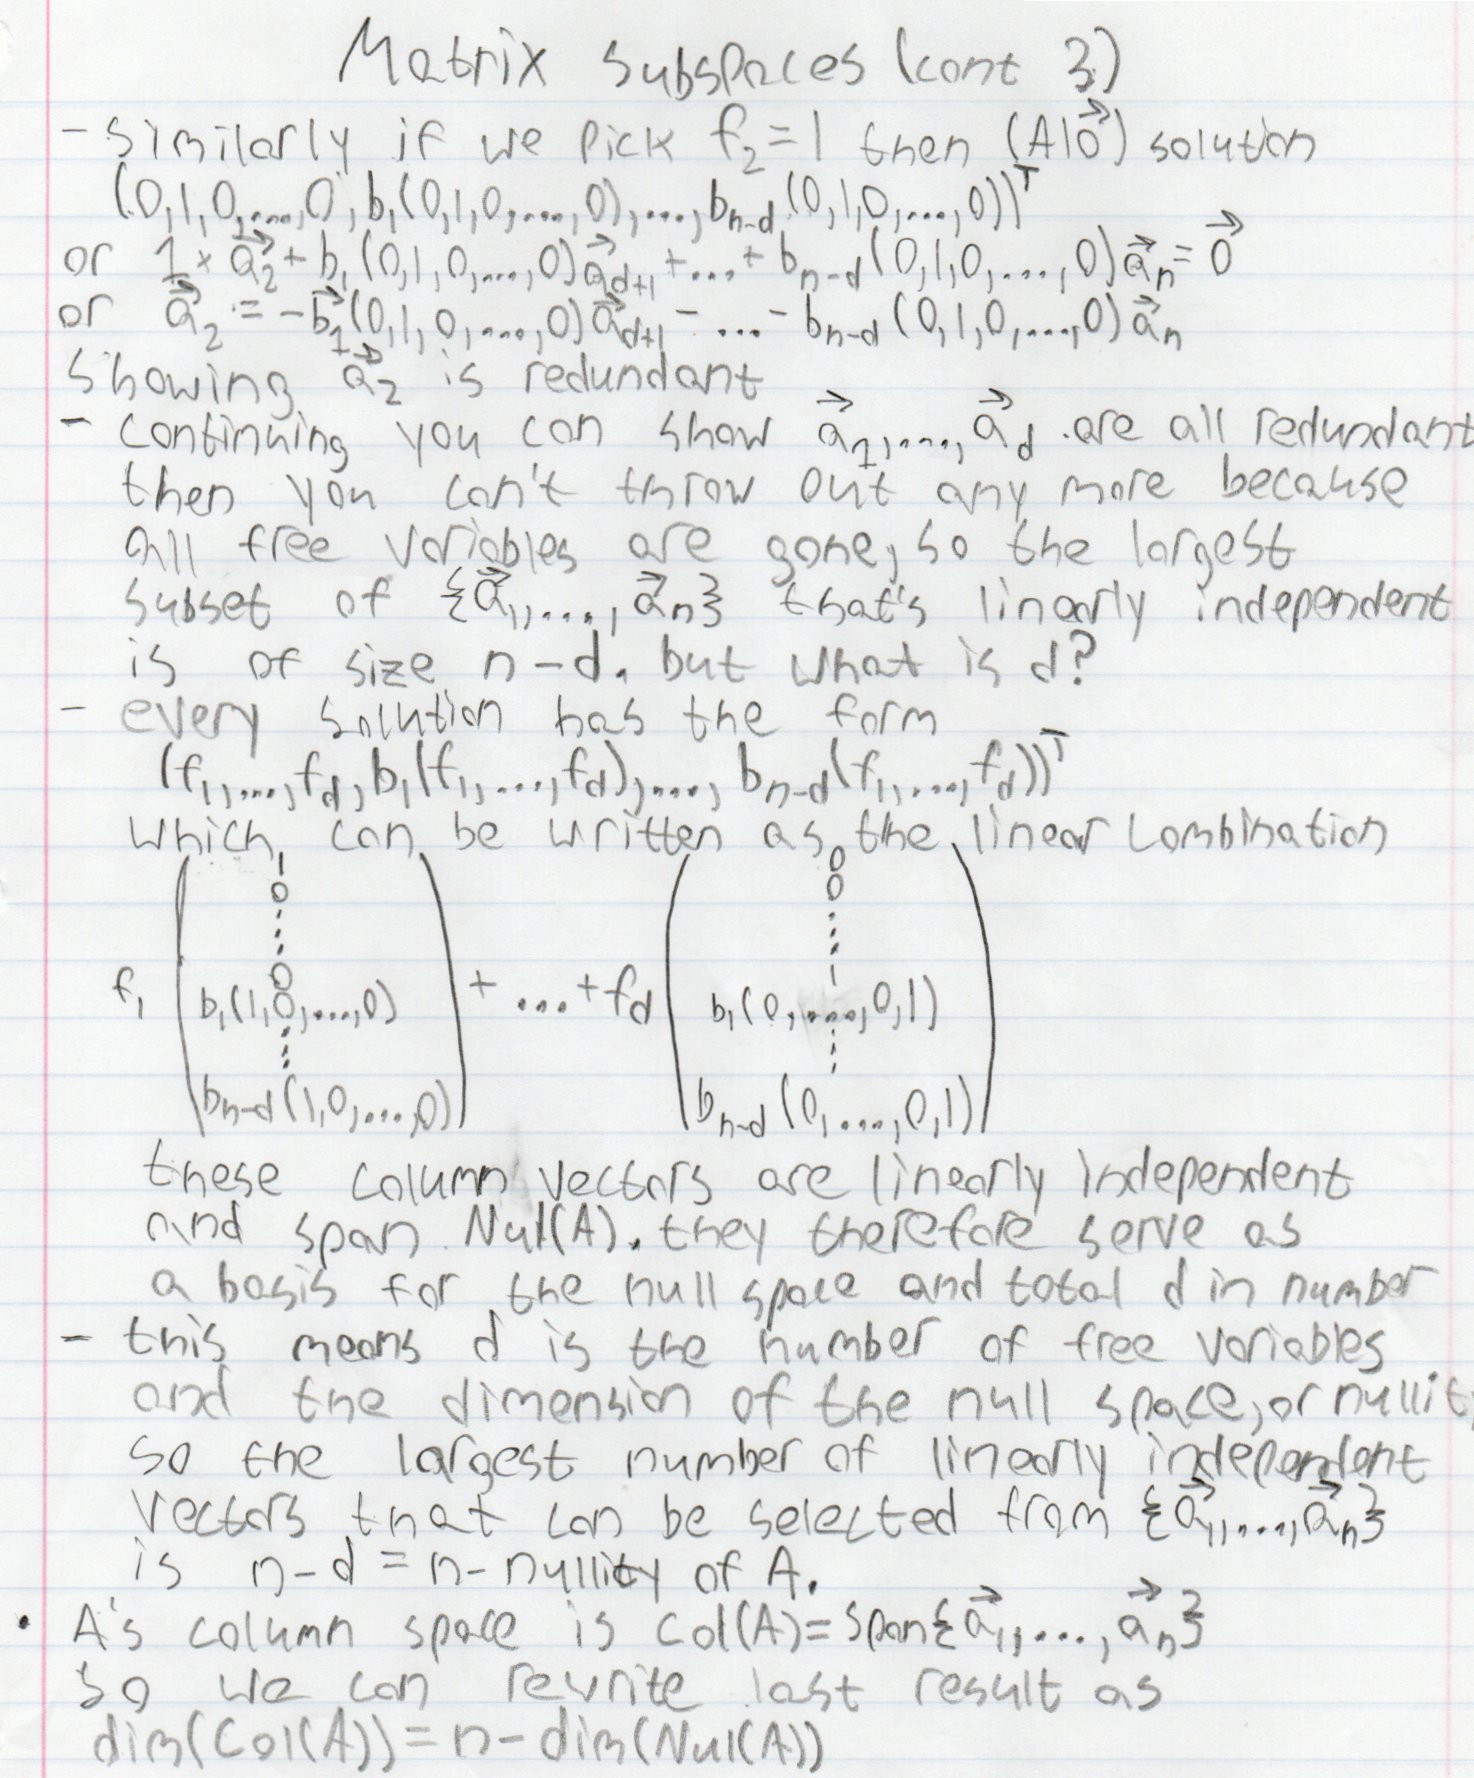 Matrix subspaces (cont 3)
- similarly if we pick f₂=1 then (A|0⃗) solution
(0,1,0,...,0,b₁(0,1,0,...,0),...,bₙ₋d(0,1,0,...,0))ᵀ
or 1×a⃗₂+b₁(0,1,0,...,0)a⃗d+1+...+bₙ₋d(0,1,0,...,0)a⃗ₙ=0⃗
or a⃗₂=-b⃗₁(0,1,0,...,0)a⃗d+1-...-bₙ₋d(0,1,0,...,0)a⃗ₙ
showing a⃗₂ is redundant
- continuing you can show a⃗₁,...,a⃗d are all redundant
then you can't throw out any more because
all free variables are gone, so the largest
subset of {a⃗₁,...,a⃗ₙ} that's linearly independent
is of size n-d. but what is d?
- every solution has the form
(f₁,...,fd,b₁(f₁,...,fd),...,bₙ₋d(f₁,...,fd))ᵀ
which can be written as the linear combination
1 0
0 0
⋮ ⋮
0 1
f₁ b₁(1,0,...,0) +...+fd b₁(0,...,0,1)
⋮ ⋮
bₙ₋d(1,0,...,0) bₙ₋d(0,...,0,1)
these column vectors are linearly independent
and span Nul(A). they therefore serve as
a basis for the null space and total d in number
- this means d is the number of free variables
and the dimension of the null space, or nullit
so the largest number of linearly independent
vectors that can be selected from {a⃗₁,...,a⃗ₙ}
is n-d=n-nullity of A.
• A's column space is Col(A)=span{a⃗₁,...,a⃗ₙ}
so we can rewrite last result as
dim(Col(A))=n-dim(Nul(A))